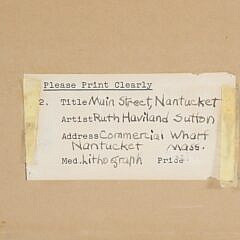 Please Print Clearly
2. Title Main Street, Nantucket
Artist Ruth Haviland Sutton
Address Commercial Wharf
Nantucket Mass.
Med. Lithograph Price